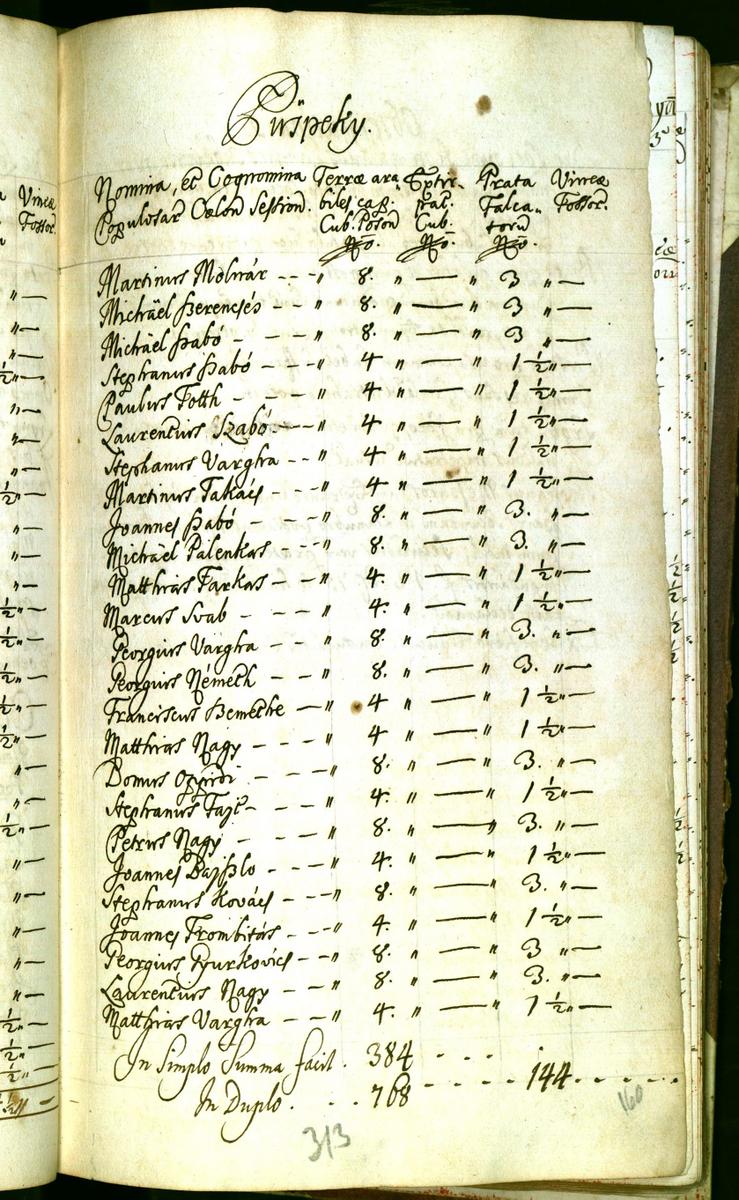 Püspeky.
Nomina, et Cognomina Terræ ara- Extir- Prata Vineæ
Populosar Colon Session. biles cap. pat. Falca- Fossor.
Cub. Poson Cub. torū
No. No. No.
Martinus Molnár - - - " 8. " — " 3 " —
Michäel Berencsés - - " 8. " — " 3 " —
Michäel Szabó - - - " 8. " — " 3 " —
Stephanus Szabó - - - " 4 " — " 1 ½ " —
Paulus Totth - - - " 4 " — " 1 ½ " —
Laurentius Szabó - - - " 4 " — " 1 ½ " —
Stephanus Vargha - - " 4 " — " 1 ½ " —
Martinus Takács - - - " 4 " — " 1 ½ " —
Joannes Szabó - - - " 8. " — " 3. " —
Michäel Palenkas - - - " 8. " — " 3. " —
Matthias Farkas - - - " 4. " — " 1 ½ " —
Marcus Svab - - - " 4. " — " 1 ½ " —
Georgius Vargha - - " 8. " — " 3. " —
Georgius Németh - - " 8. " — " 3. " —
Franciscus Bemethe — " 4 " — " 1 ½ " —
Matthias Nagy - - - " 4 " — " 1 ½ " —
Domus Oppidi - - - " 8. " — " 3. " —
Stephanus Fazi - - - " 4. " — " 1 ½ " —
Petrus Nagy - - - " 8. " — " 3. " —
Joannes - - - " 4. " — " 1 ½ " —
Stephanus Kovács - - - " 8. " — " 3. " —
Joannes Trombitás - - " 4. " — " 1 ½ " —
Georgius Gyurkovics - - " 8. " — " 3 " —
Laurentius Nagy - - " 8. " — " 3. " —
Matthias Vargha - - " 4. " — " 1 ½ " —
In Simplo Summa facit . 384 - - - -
In Duplo . - . 768 - - - - 144 - - - -
313
160